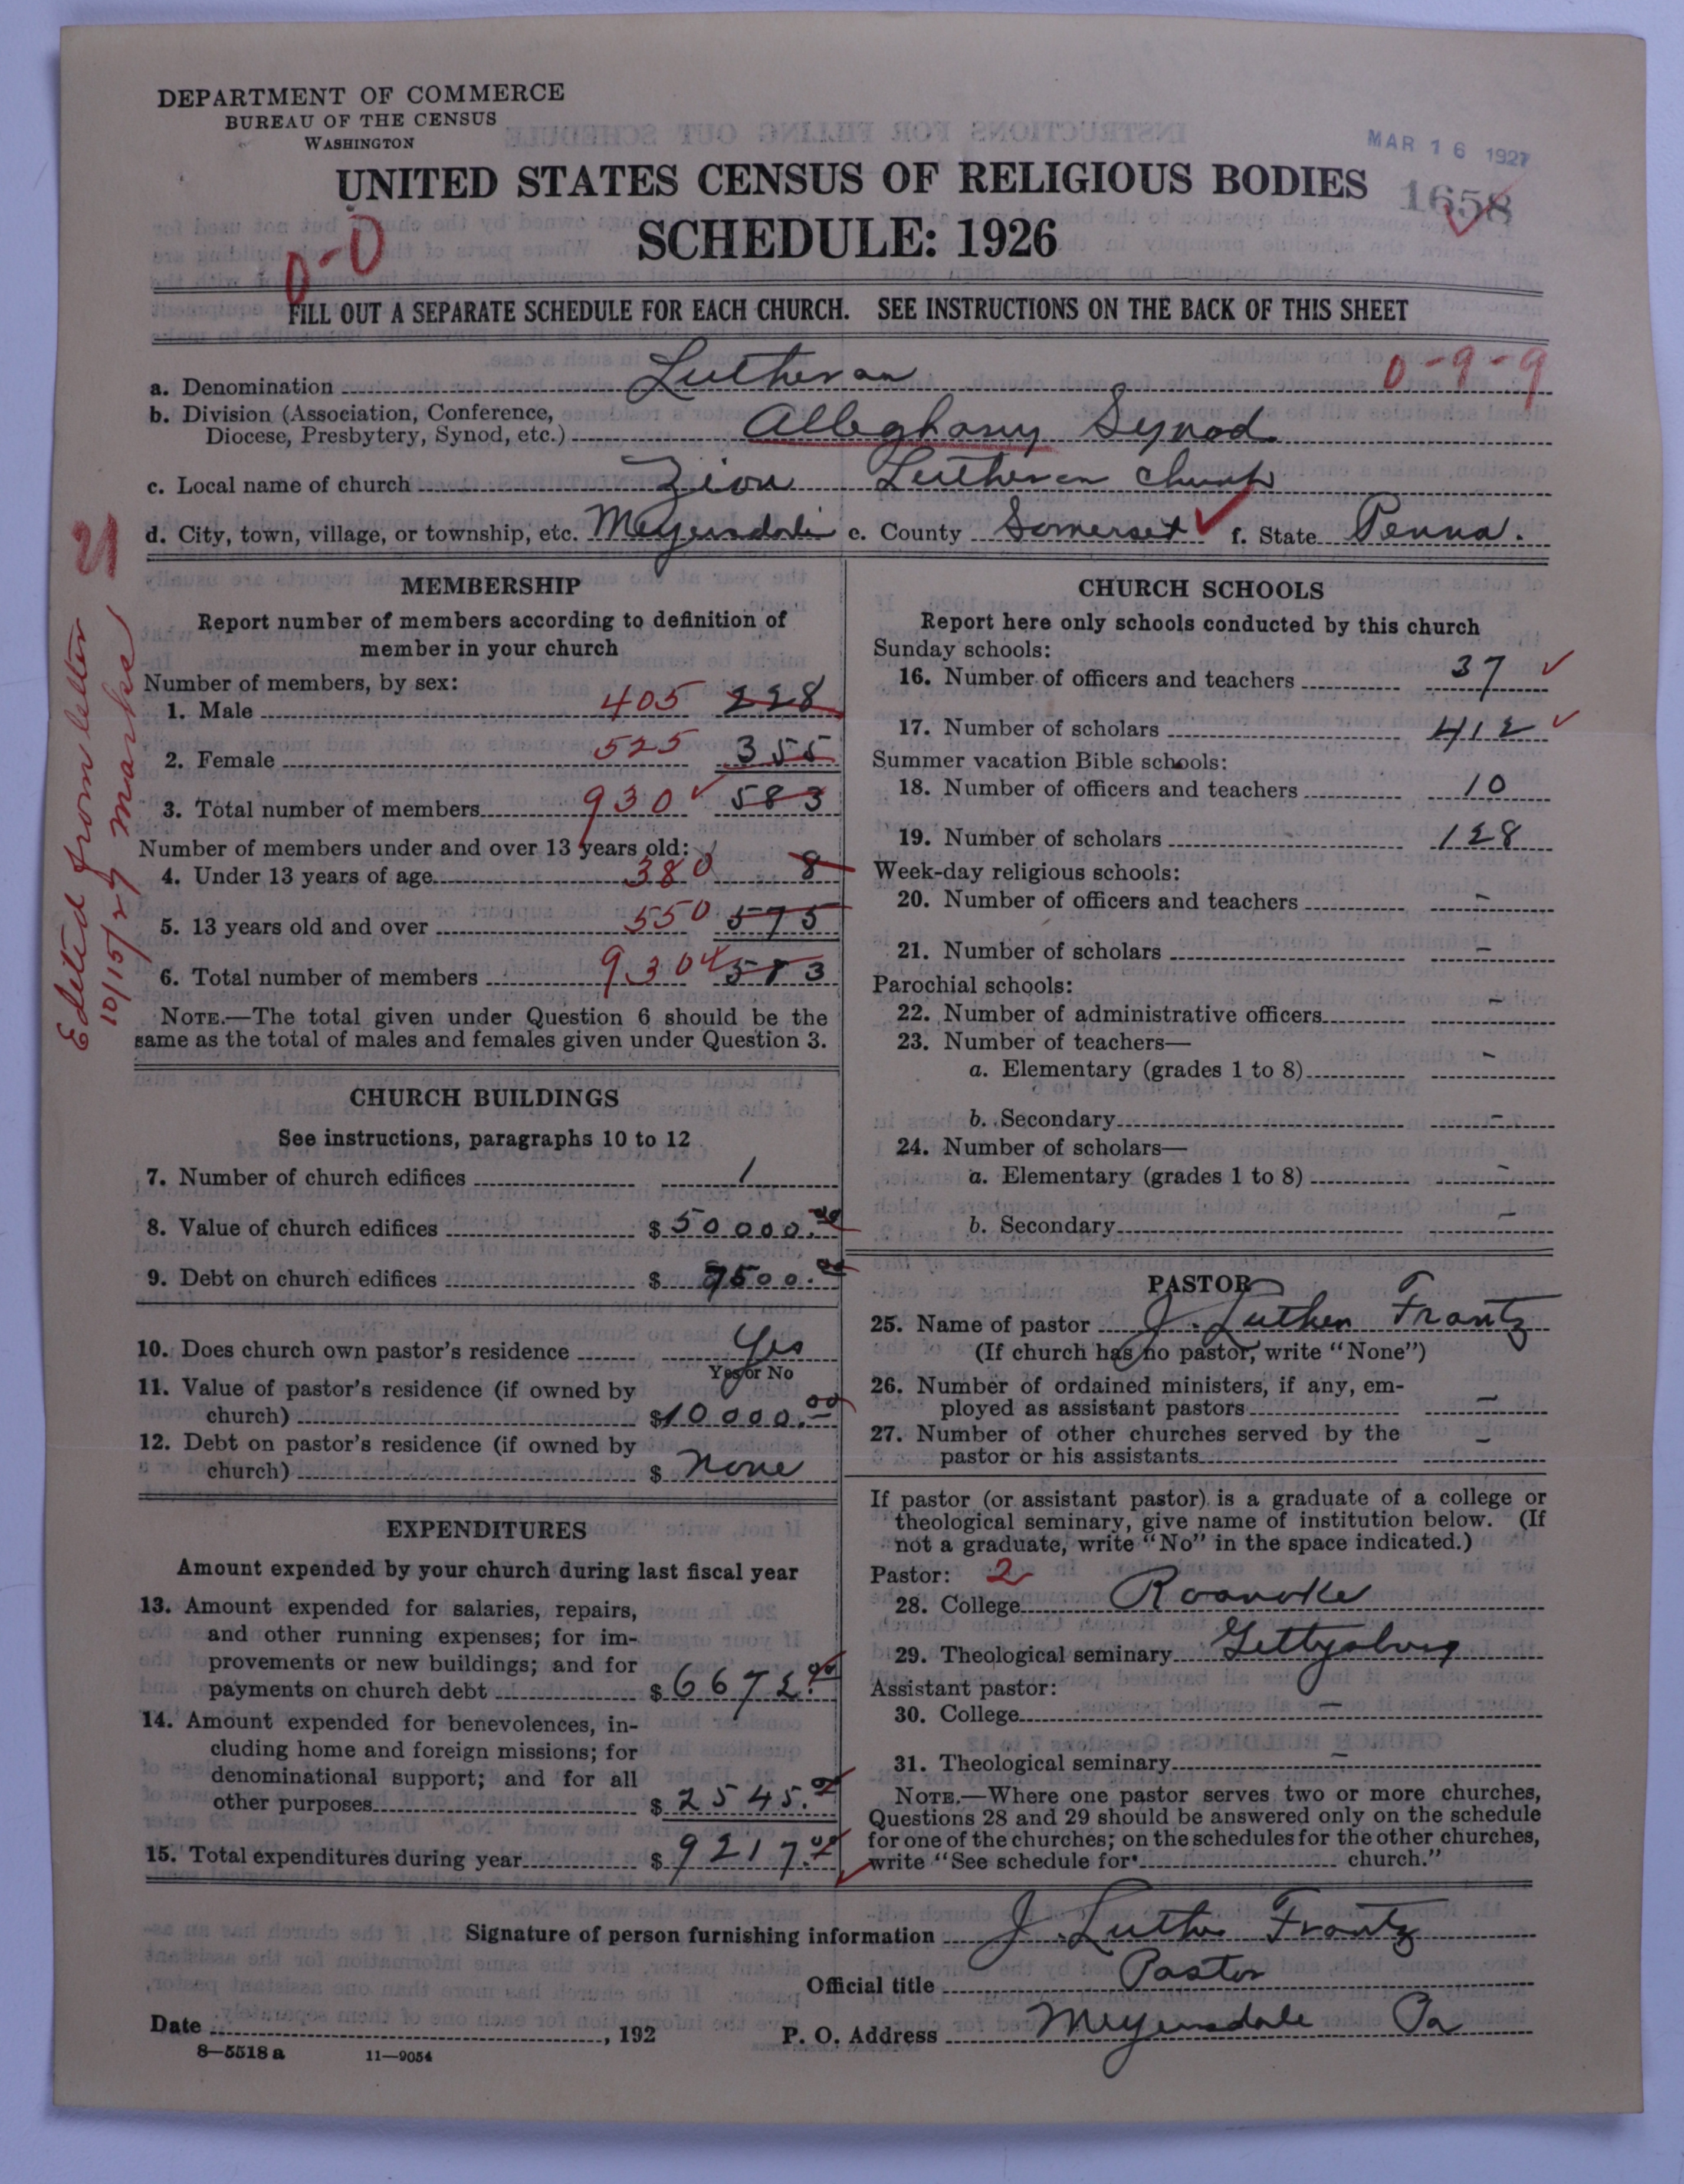 DEPARTMENT OF COMMERCE
BUREAU OF THE CENSUS
WASHINGTON
MAR 16 1927
UNITED STATES CENSUS OF RELIGIOUS BODIES
1658
SCHEDULE: 1926
0-0
FILL OUT A SEPARATE SCHEDULE FOR EACH CHURCH. SEE INSTRUCTIONS ON THE BACK OF THIS SHEET
a. Denomination Lutheran 0-9-9
b. Division (Association, Conference,
Diocese, Presbytery, Synod, etc.) Alleghany Synod
c. Local name of church Zion Lutheran Church
d. City, town, village, or township, etc. Meyersdale e. County Somerset f. State Penna.
Edited from letter
10/15/27 Marke
MEMBERSHIP
Report number of members according to definition of
member in your church
Number of members, by sex:
1. Male 405 228
2. Female 525 355
3. Total number of members 930 583
Number of members under and over 13 years old:
4. Under 13 years of age 380 8
5. 13 years old and over 550 575
6. Total number of members 930 583
NOTE.—The total given under Question 6 should be the
same as the total of males and females given under Question 3.
CHURCH BUILDINGS
See instructions, paragraphs 10 to 12
7. Number of church edifices 1
8. Value of church edifices $ 50000.00
9. Debt on church edifices $ 7500.00
10. Does church own pastor's residence Yes
Yes or No
11. Value of pastor's residence (if owned by
church) $10000.00
12. Debt on pastor's residence (if owned by
church) $ None
EXPENDITURES
Amount expended by your church during last fiscal year
13. Amount expended for salaries, repairs,
and other running expenses; for im-
provements or new buildings; and for
payments on church debt $ 6672.00
14. Amount expended for benevolences, in-
cluding home and foreign missions; for
denominational support; and for all
other purposes $ 2545.00
15. Total expenditures during year $ 9217.00
CHURCH SCHOOLS
Report here only schools conducted by this church
Sunday schools:
16. Number of officers and teachers 37
17. Number of scholars 412
Summer vacation Bible schools:
18. Number of officers and teachers 10
19. Number of scholars 128
Week-day religious schools:
20. Number of officers and teachers -
21. Number of scholars -
Parochial schools:
22. Number of administrative officers -
23. Number of teachers—
a. Elementary (grades 1 to 8) -
b. Secondary -
24. Number of scholars—
a. Elementary (grades 1 to 8) -
b. Secondary -
PASTOR
25. Name of pastor J. Luther Frantz
(If church has no pastor, write "None")
26. Number of ordained ministers, if any, em-
ployed as assistant pastors -
27. Number of other churches served by the
pastor or his assistants -
If pastor (or assistant pastor) is a graduate of a college or
theological seminary, give name of institution below. (If
not a graduate, write "No" in the space indicated.)
Pastor: 2
28. College Roanoke
29. Theological seminary Gettysburg
Assistant pastor:
30. College -
31. Theological seminary -
NOTE.—Where one pastor serves two or more churches,
Questions 28 and 29 should be answered only on the schedule
for one of the churches; on the schedules for the other churches,
write "See schedule for church."
Signature of person furnishing information J. Luther Frantz
Official title Pastor
Date , 192
P. O. Address Meyersdale Pa
8—5518 a 11—9054